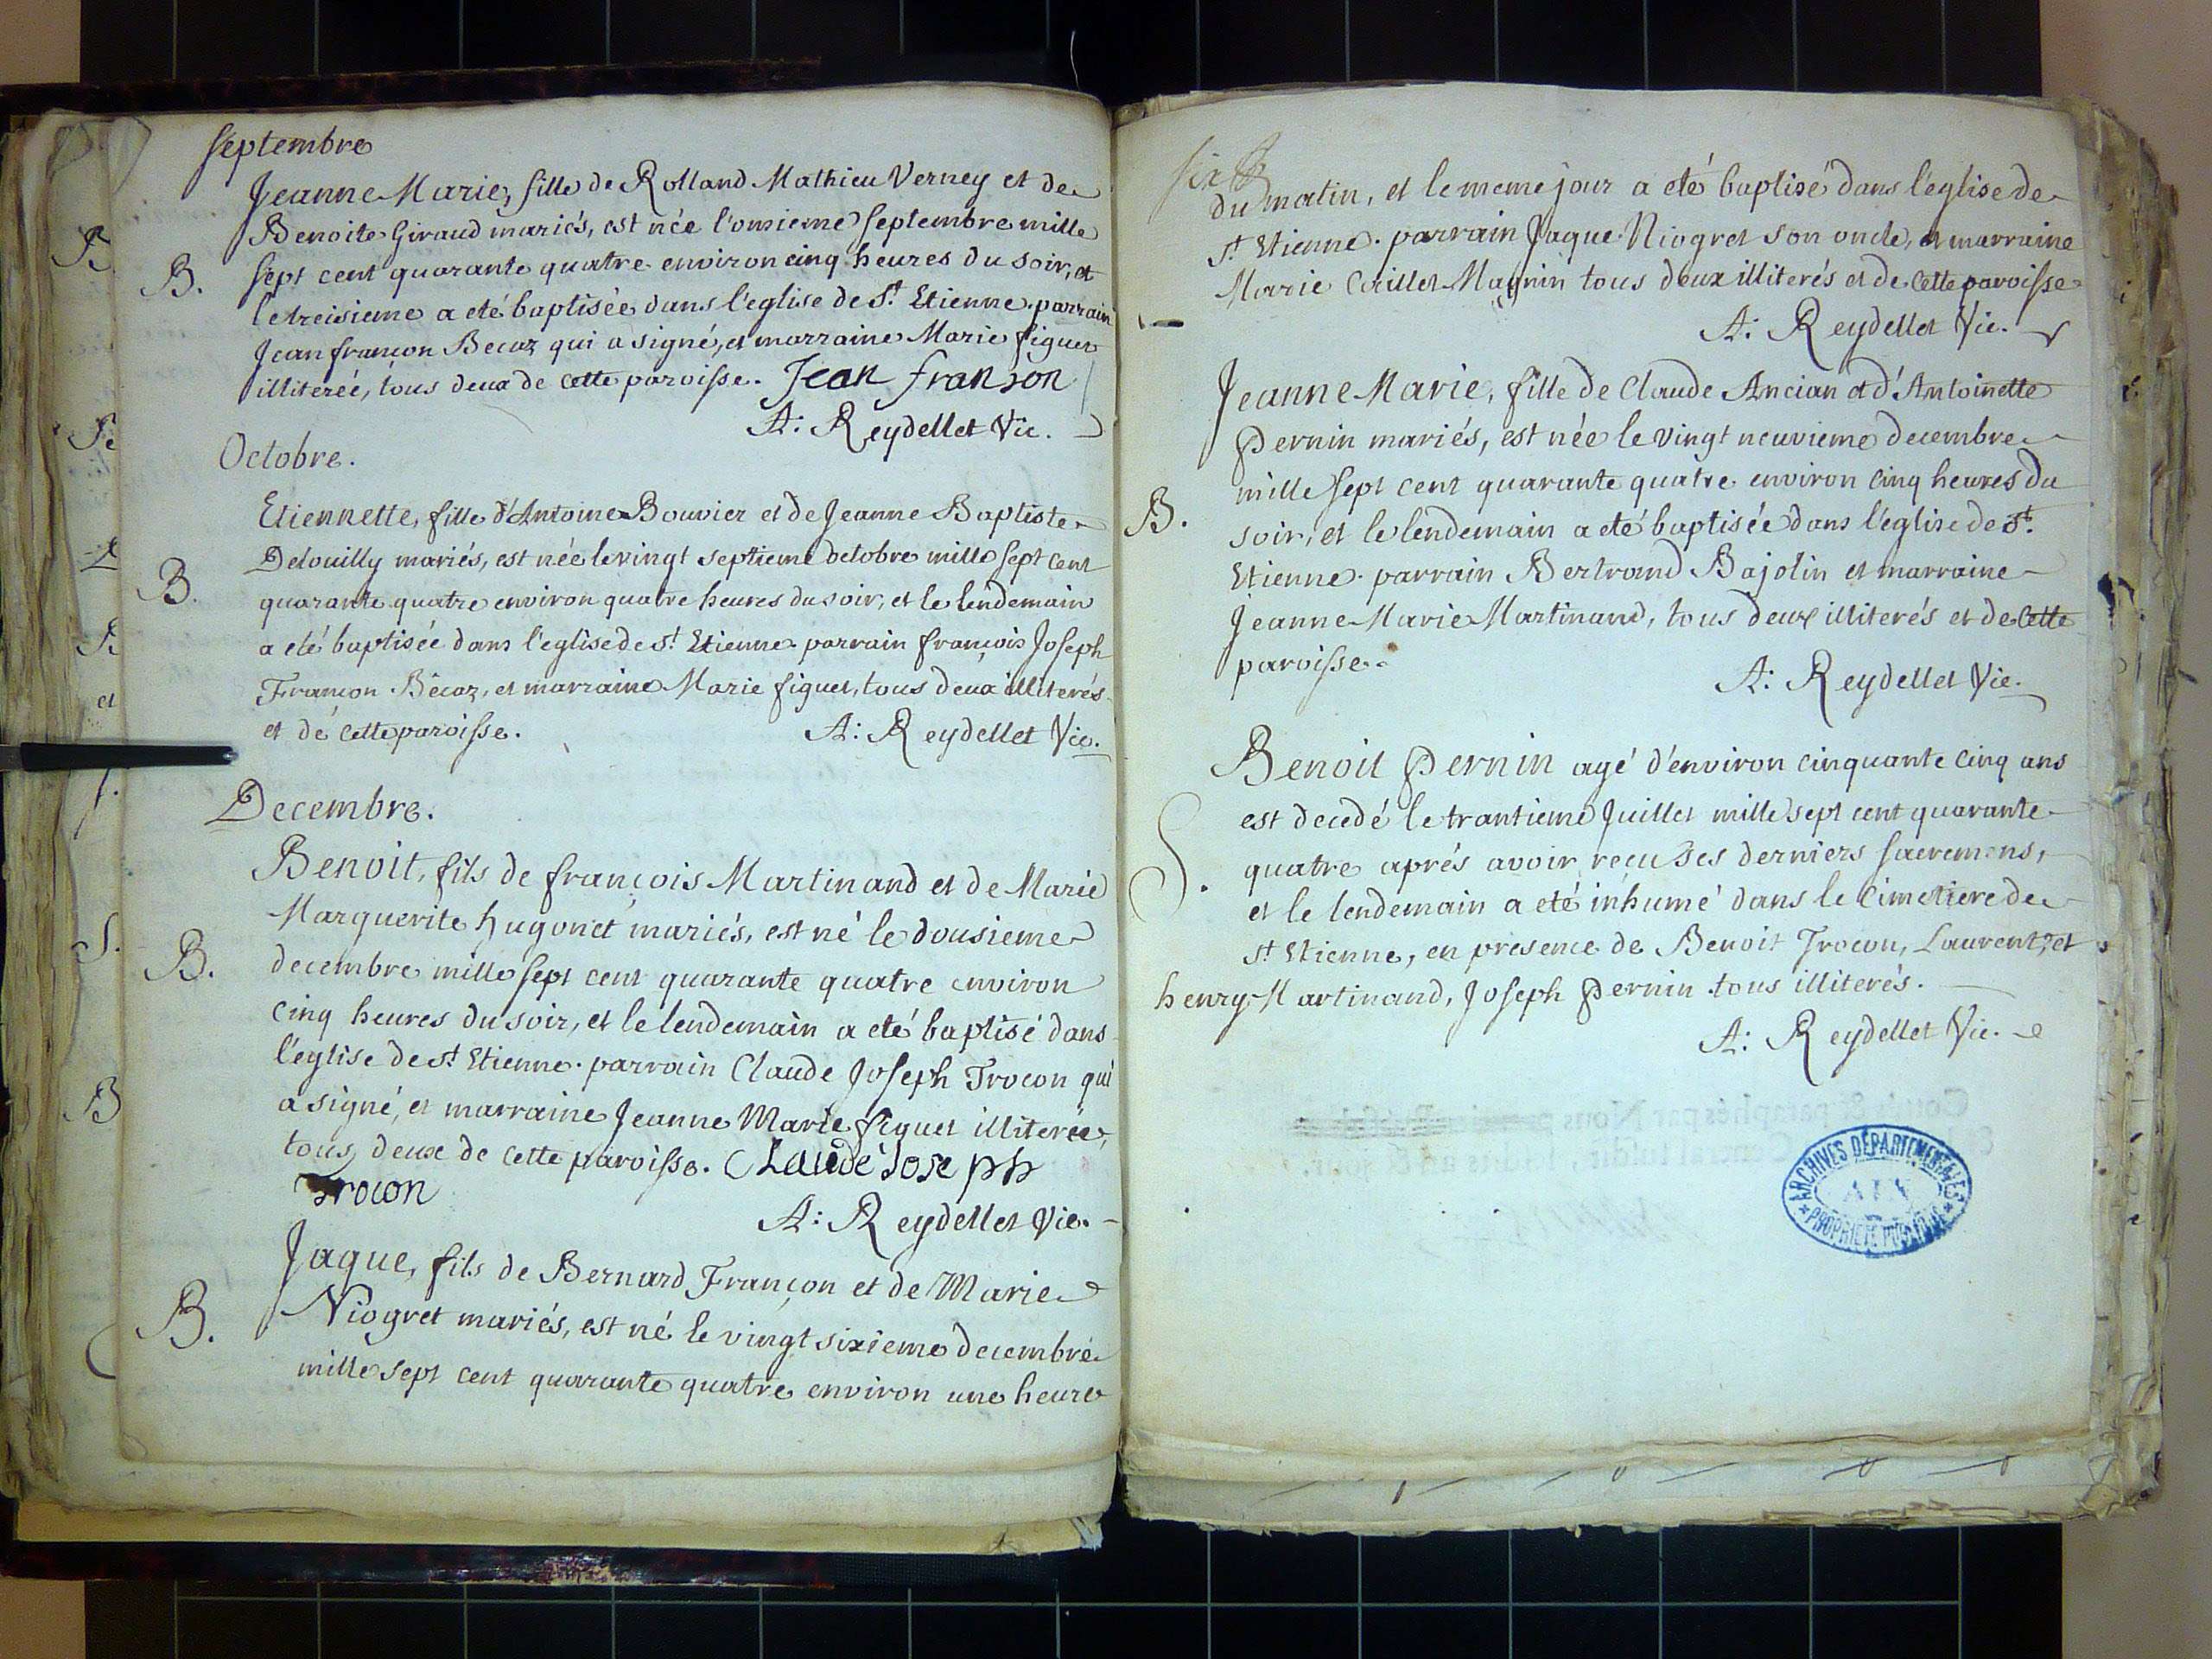 septembre
Jeanne Marie, fille de Rolland Mathieu Verney et de
Benoite Giraud mariés, est née l'onsieme septembre mille
B. sept cent quarante quatre environ cinq heures du soir, et
le treisieme a eté baptisée dans l'eglise de St Etienne. parrain
Jean françon Becaz qui a signé, et marraine Marie figuet
illiterée, tous deux de cette paroisse. Jean franson
A: Reydellet Vic.
Octobre.
Etiennette, fille d'Antoine Bouvier et de Jeanne Baptiste
Delouilly mariés, est née le vingt septieme octobre mille sept cent
B. quarante quatre environ quatre heures du soir, et le lendemain
a eté baptisée dans l'eglise de st Etienne. parrain françois Joseph
Françon Bécaz, et marraine Marie figuet, tous deux illiterés
et de cette paroisse. A: Reydellet Vic.
Decembre.
Benoit, fils de françois Martinand et de Marie
Marguerite hugonet mariés, est né le dousieme
B. decembre mille sept cent quarante quatre environ
cinq heures du soir, et le lendemain a eté baptisé dans
l'église de st Etienne. parrain Claude Joseph Trocon qui
a signé, et marraine Jeanne Marie figuet illiterée,
tous deux de cette paroisse. Claude Joseph
Trocon
A: Reydellet Vic.
Jaque, fils de Bernard Françon et de Marie
B. Niogret mariés, est né le vingt sixieme decembre
mille sept cent quarante quatre environ une heure
six
du matin, et le meme jour a eté baptisé dans l'église de
st Etienne. parrain Jaque Niogret son oncle, et marraine
Marie Caillet Magnin tous deux illiterés et de cette paroisse
A: Reydellet Vic.
Jeanne Marie, fille de Claude Ancian et d'Antoinette
Pernin mariés, est née le vingt neuvieme decembre
mille sept cent quarante quatre environ cinq heures du
B. soir, et le lendemain a eté baptisée dans l'église de st.
Etienne. parrain Bertrand Bajolin et marraine
Jeanne Marie Martinand, tous deux illiterés et de cette
paroisse.
A: Reydellet Vic.
Benoit Pernin agé d'environ cinquante cinq ans
est decedé le trantieme Juillet mille sept cent quarante
S. quatre aprés avoir reçu ses derniers sacremens,
et le lendemain a eté inhumé dans le cimetiere de
st Etienne, en presence de Benoit Trocon, Laurent, et
henry Martinand, Joseph Pernin tous illiterés.
A: Reydellet Vic.
ARCHIVES DÉPARTEMENTALES
AIN
PROPRIÉTÉ PUBLIQUE